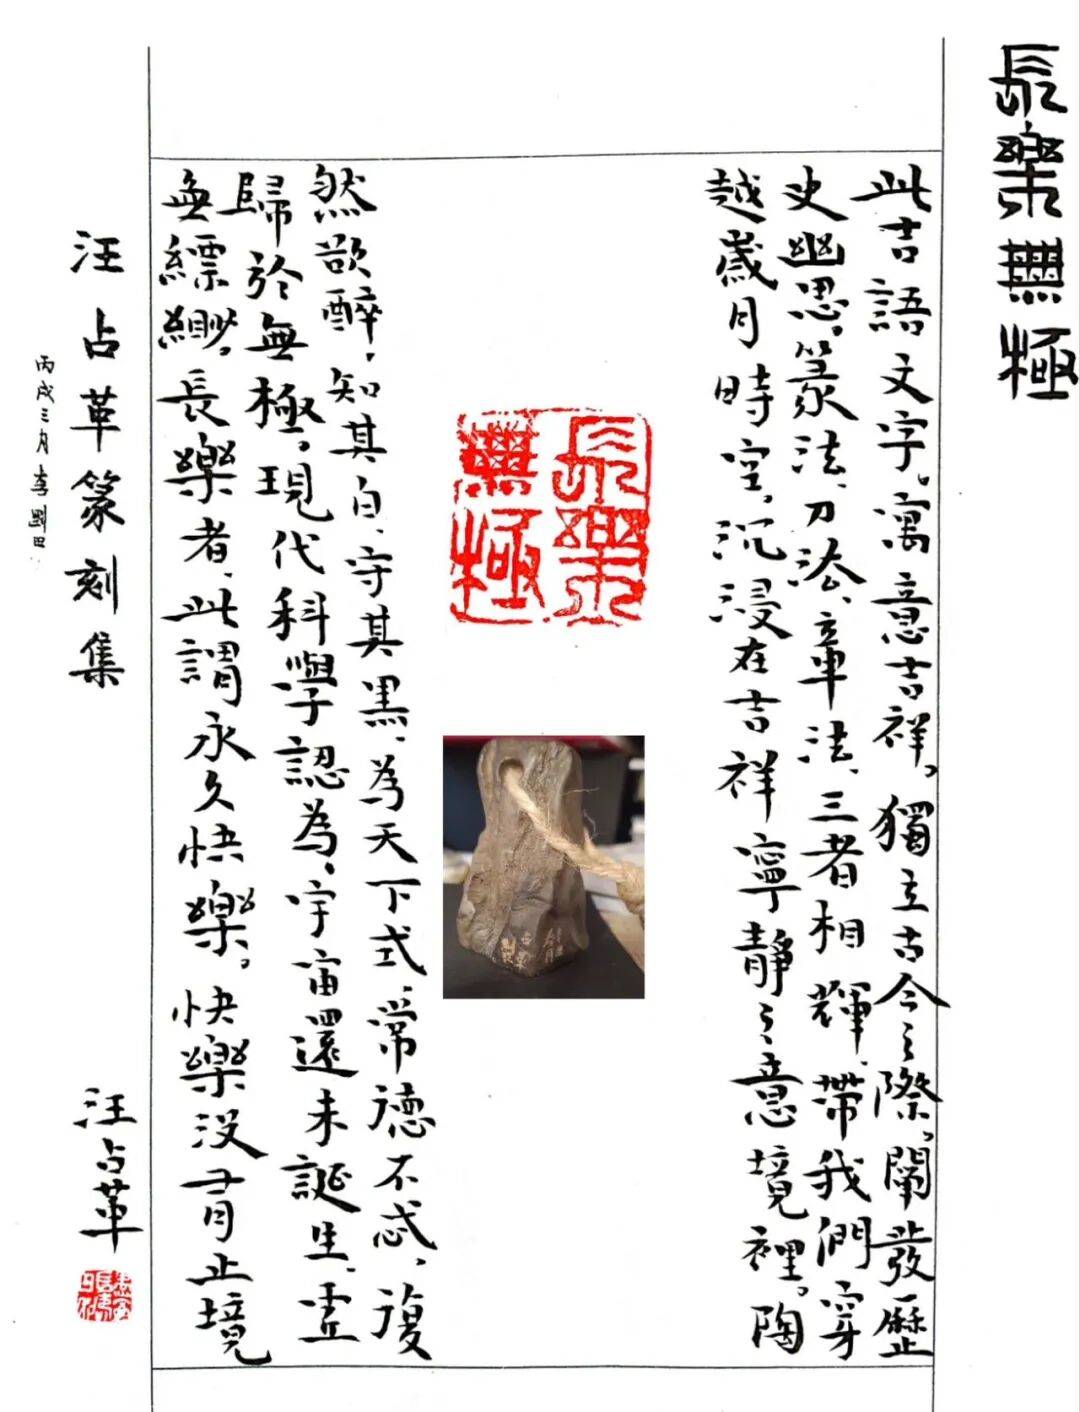 長樂無極
此吉語文字。寓意吉祥。獨立古今之際。闡發歷
史幽思。篆法、刀法、章法、三者相輝、帶我們穿
越歲月時空。沉浸在吉祥寧靜之意境裡。陶
長樂
無極
然欲醉。知其白、守其黑、為天下式、常德不忒。復
歸於無極。現代科學認為、宇宙還未誕生、虛
無縹緲。長樂者、此謂永久快樂。快樂沒有止境
汪占革篆刻集
汪占革
丙戌三月李剛田